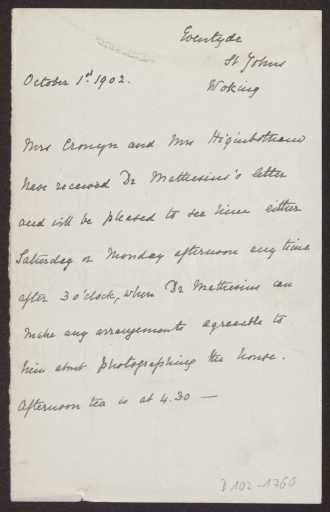 Eventyde
St Johns
Woking
October 1st 1902.
Mrs Cronyn and Mrs Higinbotham
have received Dr Mathesius's letter
and will be pleased to see him either
Saturday or Monday afternoon any time
after 3 o'clock, when Dr Mathesius can
make any arrangements agreeable to
him about photographing the house.
Afternoon tea is at 4.30 —
D 102-1760